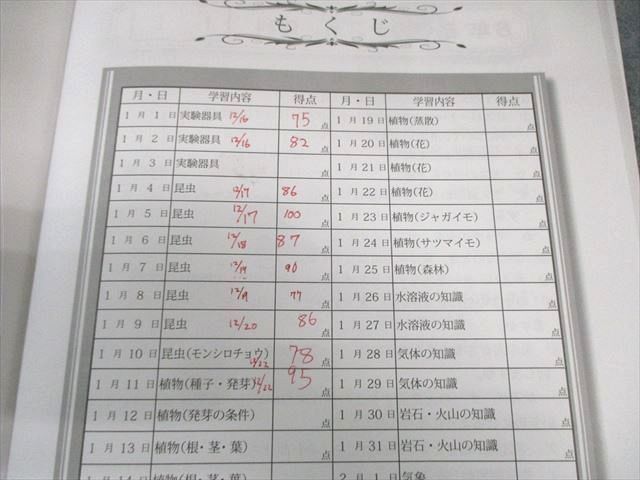 もくじ
月・日 学習内容 得点 月・日 学習内容 得点
1月1日 実験器具 12/16 75点 1月19日 植物(蒸散) 点
1月2日 実験器具 12/16 82点 1月20日 植物(花) 点
1月3日 実験器具 点 1月21日 植物(花) 点
1月4日 昆虫 12/17 86点 1月22日 植物(花) 点
1月5日 昆虫 12/17 100点 1月23日 植物(ジャガイモ) 点
1月6日 昆虫 12/18 87点 1月24日 植物(サツマイモ) 点
1月7日 昆虫 12/19 90点 1月25日 植物(森林) 点
1月8日 昆虫 77点 1月26日 水溶液の知識 点
1月9日 昆虫 12/20 86点 1月27日 水溶液の知識 点
1月10日 昆虫(モンシロチョウ) 12/22 78点 1月28日 気体の知識 点
1月11日 植物(種子・発芽) 12/22 95点 1月29日 気体の知識 点
1月12日 植物(発芽の条件) 点 1月30日 岩石・火山の知識 点
1月13日 植物(根・茎・葉) 点 1月31日 岩石・火山の知識 点
1月14日 植物(根・茎・葉) 2月1日 気象